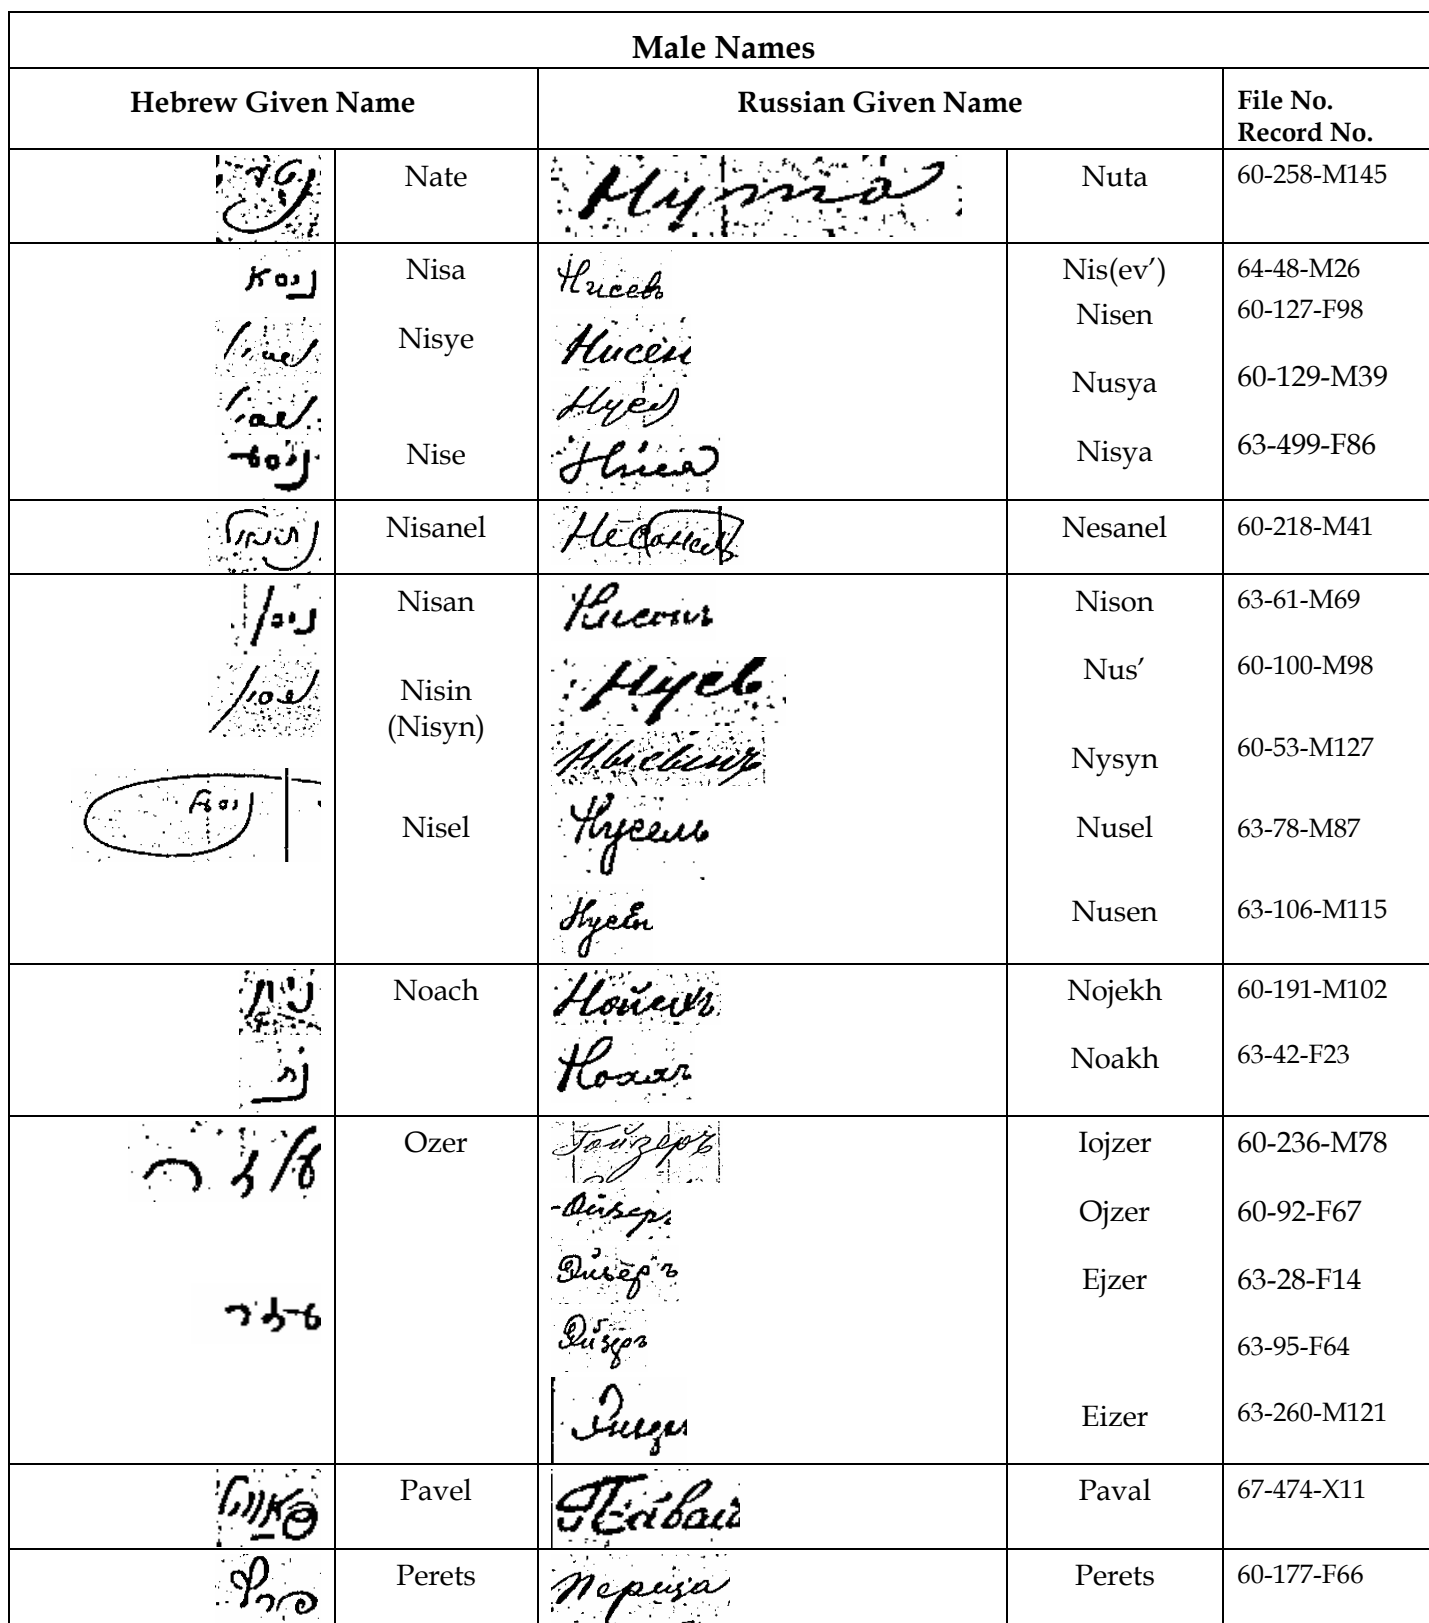 Male Names
Hebrew Given Name Russian Given Name File No. Record No.
Nate Нута Nuta 60-258-M145
ניסא Nisa Нисевъ Nis(ev’) 64-48-M26
Nisye Нисен Nisen 60-127-F98
Нуся Nusya 60-129-M39
Nise Нися Nisya 63-499-F86
Nisanel Nesanel 60-218-M41
ניסן Nisan Нисонъ Nison 63-61-M69
ניסין Nisin (Nisyn) Нусь Nus’ 60-100-M98
Нысынъ Nysyn 60-53-M127
Nisel Нусель Nusel 63-78-M87
Нусен Nusen 63-106-M115
Noach Нойехъ Nojekh 60-191-M102
נח Ноахъ Noakh 63-42-F23
Ozer Іойзеръ Iojzer 60-236-M78
Ойзеръ Ojzer 60-92-F67
Эйзеръ Ejzer 63-28-F14
Эйзеръ 63-95-F64
Eizer 63-260-M121
Pavel Paval 67-474-X11
פרץ Perets Perets 60-177-F66